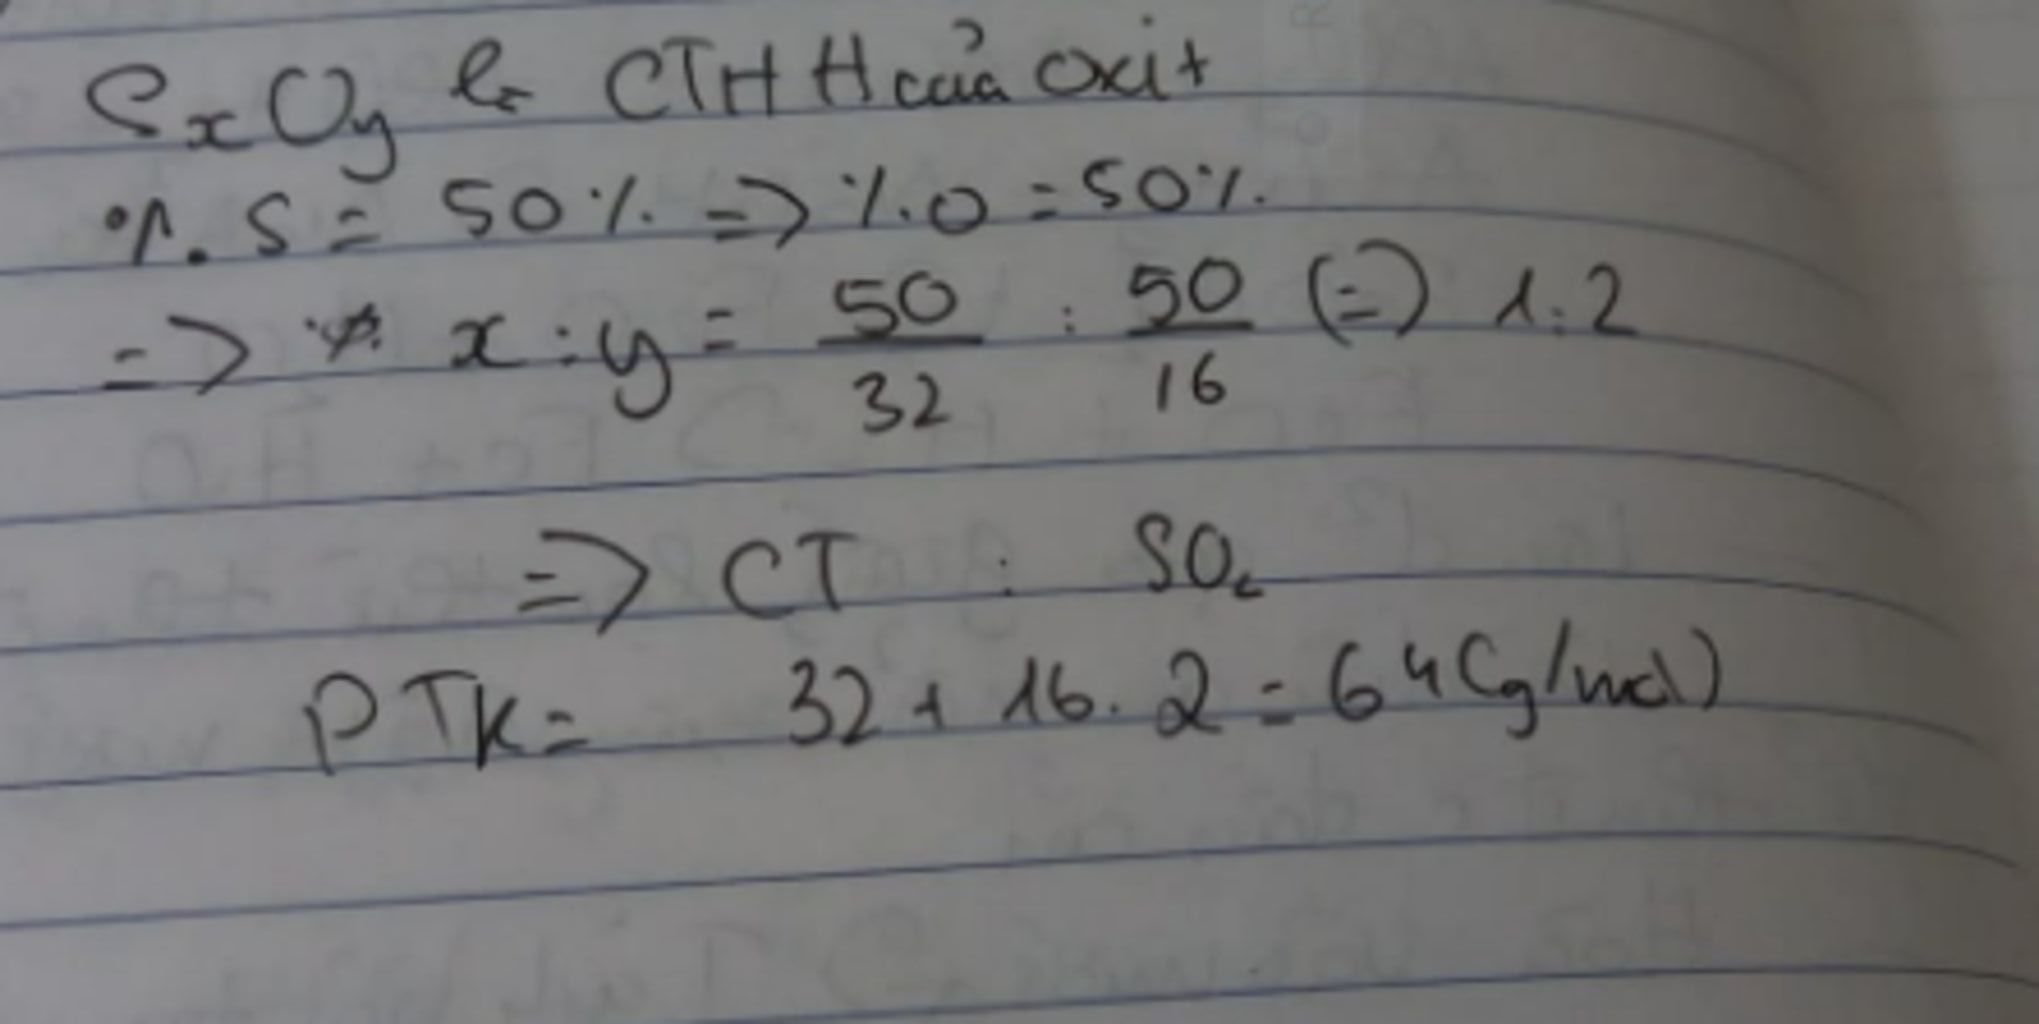 SxOy là CTHH của oxit
%. S = 50% => %.O = 50%.
=> x : y = 50/32 : 50/16 (=) 1:2
=> CT : SO2
PTK = 32 + 16. 2 = 64 (g/mol)